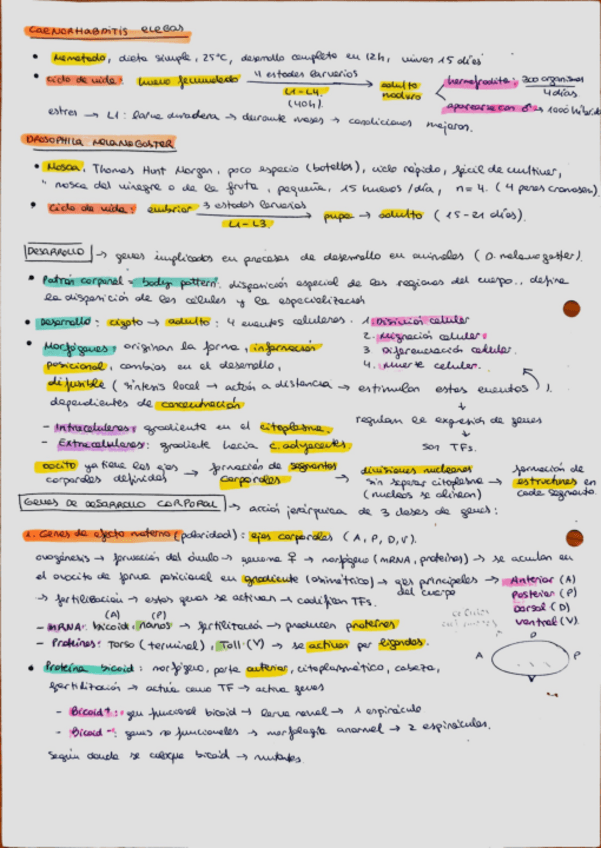 CAENORHABDITIS ELEGAS
• Nematodo, dieta simple, 25°C, desarrollo completo en 12h, viven 15 días
• ciclo de vida: huevo fecundado 4 estados larvarios L1-L4 (40h) → adulto maduro < hermafrodita: 300 organismos 4 días
aparearse con ♂ → 1000 híbrid
estres → L1: larva duradera → durante meses → condiciones mejoras.
DROSOPHILA MELANOGASTER
• Mosca, Thomas Hunt Morgan, poco espacio (botellas), ciclo rápido, fácil de cultivar,
"mosca del vinagre o de la fruta, pequeña, 15 huevos/día, n=4. (4 pares cromosom).
• Ciclo de vida: embrión 3 estados larvarios L1-L3 → pupa → adulto (15-21 días).
DESARROLLO → genes implicados en procesos de desarrollo en animales (D. melanogaster).
• Patrón corporal = body pattern: disposición espacial de las regiones del cuerpo., define
la disposición de las células y la especialización
• Desarrollo: cigoto → adulto: 4 eventos celulares. 1. División celular
2. Migración celular.
3. Diferenciación celular.
4. Muerte celular.
• Morfógenos: originan la forma, información
posicional, cambios en el desarrollo,
difusible (síntesis local → actúa a distancia → estimulan estos eventos).
dependientes de concentración
↓
regulan la expresión de genes
↓
son TFs.
- Intracelulares: gradiente en el citoplasma.
- Extracelulares: gradiente hacia c. adyacentes
oocito ya tiene los ejes corporales definidos → formación de segmentos corporales → divisiones nucleares sin separar citoplasma (nucleos se alinean) → formación de estructuras en cada segmento.
GENES DE DESARROLLO CORPORAL → acción jerárquica de 3 clases de genes:
1. Genes de efecto materno (polaridad): ejes corporales (A, P, D, V).
ovogénesis → formación del óvulo → genoma ♀ → morfógeno (mRNA, proteínas) → se acumulan en
el oocito de forma posicional en gradiente (asimétrico) → ejes principales del cuerpo → Anterior (A)
Posterior (P)
Dorsal (D)
ventral (V).
→ fertilización → estos genes se activan → codifican TFs.
(A) (P)
- mRNA: bicoid, nanos → fertilización → producen proteínas
- Proteínas: Torso (terminal), Toll (V) → se activan por ligandos.
D
A P
V
• Proteína bicoid: morfógeno, parte anterior, citoplasmático, cabeza,
fertilización → actúa como TF → activa genes
- Bicoid +: gen funcional bicoid → larva normal → 1 espiráculo
- Bicoid -: genes no funcionales → morfología anormal → 2 espiráculos.
Según donde se coloque bicoid → mutantes.